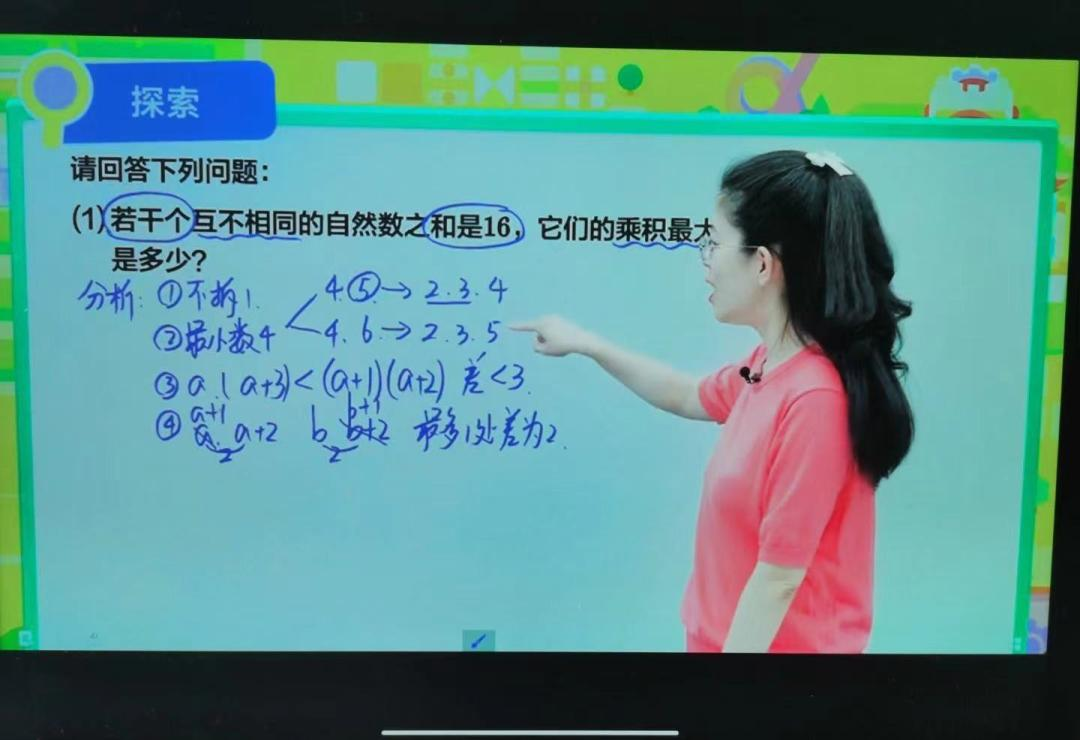 探索
请回答下列问题：
(1)若干个互不相同的自然数之和是16，它们的乘积最大
是多少？
分析：①不拆1.
4.5→2.3.4
②最小数4
4.6→2.3.5
③a.(a+3)<(a+1)(a+2) 差<3.
a+1 b+1
④a. a+2 b b+2 最多1处差为2.
2 2